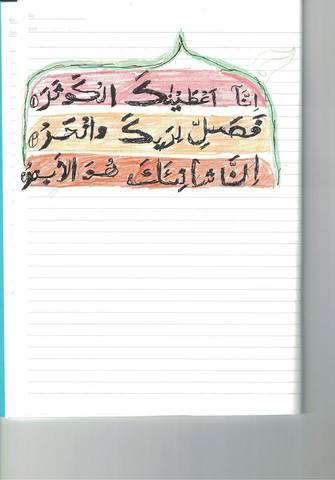 اِنَّآ اَعْطَيْنٰكَ الْكَوْثَرَ ١
فَصَلِّ لِرَبِّكَ وَانْحَرْ ٢
اِنَّ شَانِئَكَ هُوَ الْاَبْتَرُ